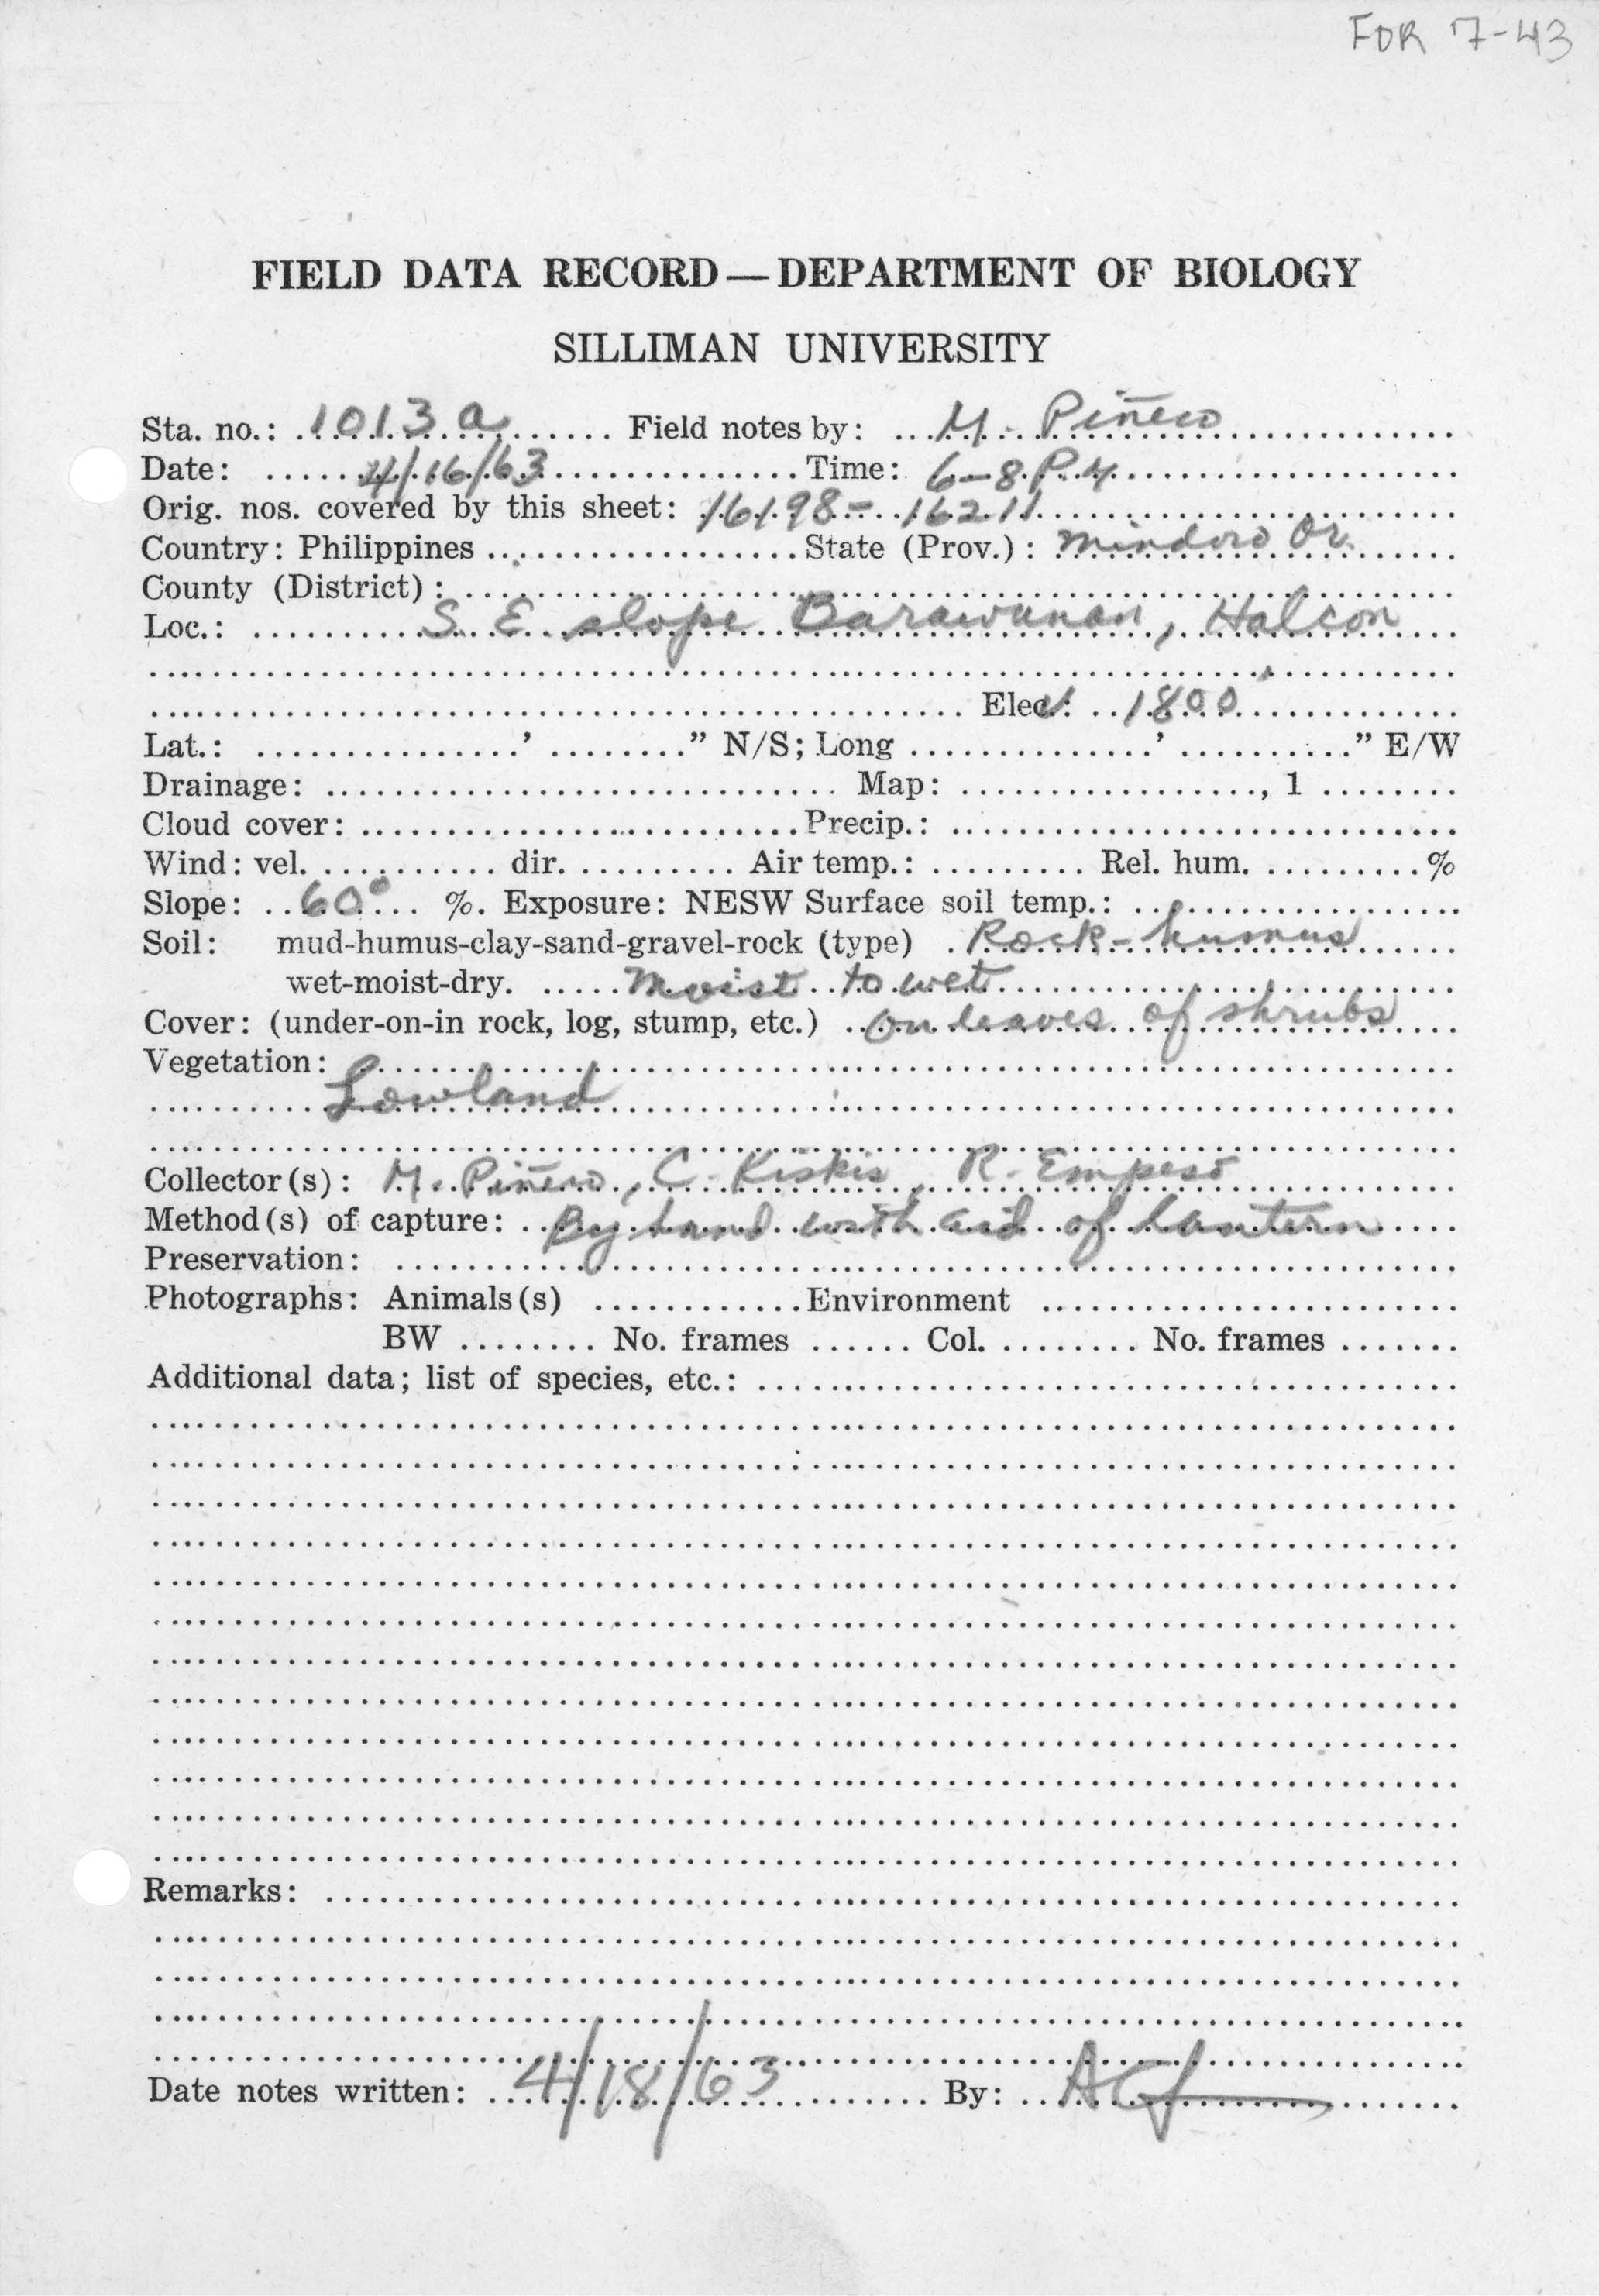 FOR 7-43
FIELD DATA RECORD—DEPARTMENT OF BIOLOGY
SILLIMAN UNIVERSITY
Sta. no.: 1013 a Field notes by: M. Piñero
Date: 4/16/63 Time: 6-8 P.M.
Orig. nos. covered by this sheet: 16198- 16211
Country: Philippines State (Prov.): Mindoro Or.
County (District):
Loc.: S. E. slope Barawanan, Halcon
Elev: 1800'
Lat.: ' " N/S; Long ' " E/W
Drainage: Map: , 1
Cloud cover: Precip.:
Wind: vel. dir. Air temp.: Rel. hum. %
Slope: 60° %. Exposure: NESW Surface soil temp.:
Soil: mud-humus-clay-sand-gravel-rock (type) Rock-humus
wet-moist-dry. Moist to wet
Cover: (under-on-in rock, log, stump, etc.) on leaves of shrubs
Vegetation:
Lowland
Collector(s): M. Piñero, C. Kiskis, R. Empeso
Method(s) of capture: By hand with aid of lantern
Preservation:
Photographs: Animals(s) Environment
BW No. frames Col. No. frames
Additional data; list of species, etc.:
Remarks:
Date notes written: 4/18/63 By: